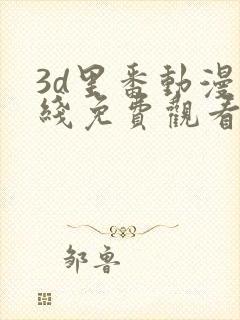 3d里番動漫
綫免費觀看
邹鲁